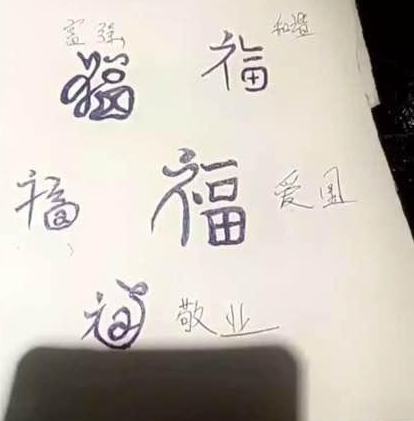 富强 和谐
福 福
福 福 爱国
福 敬业